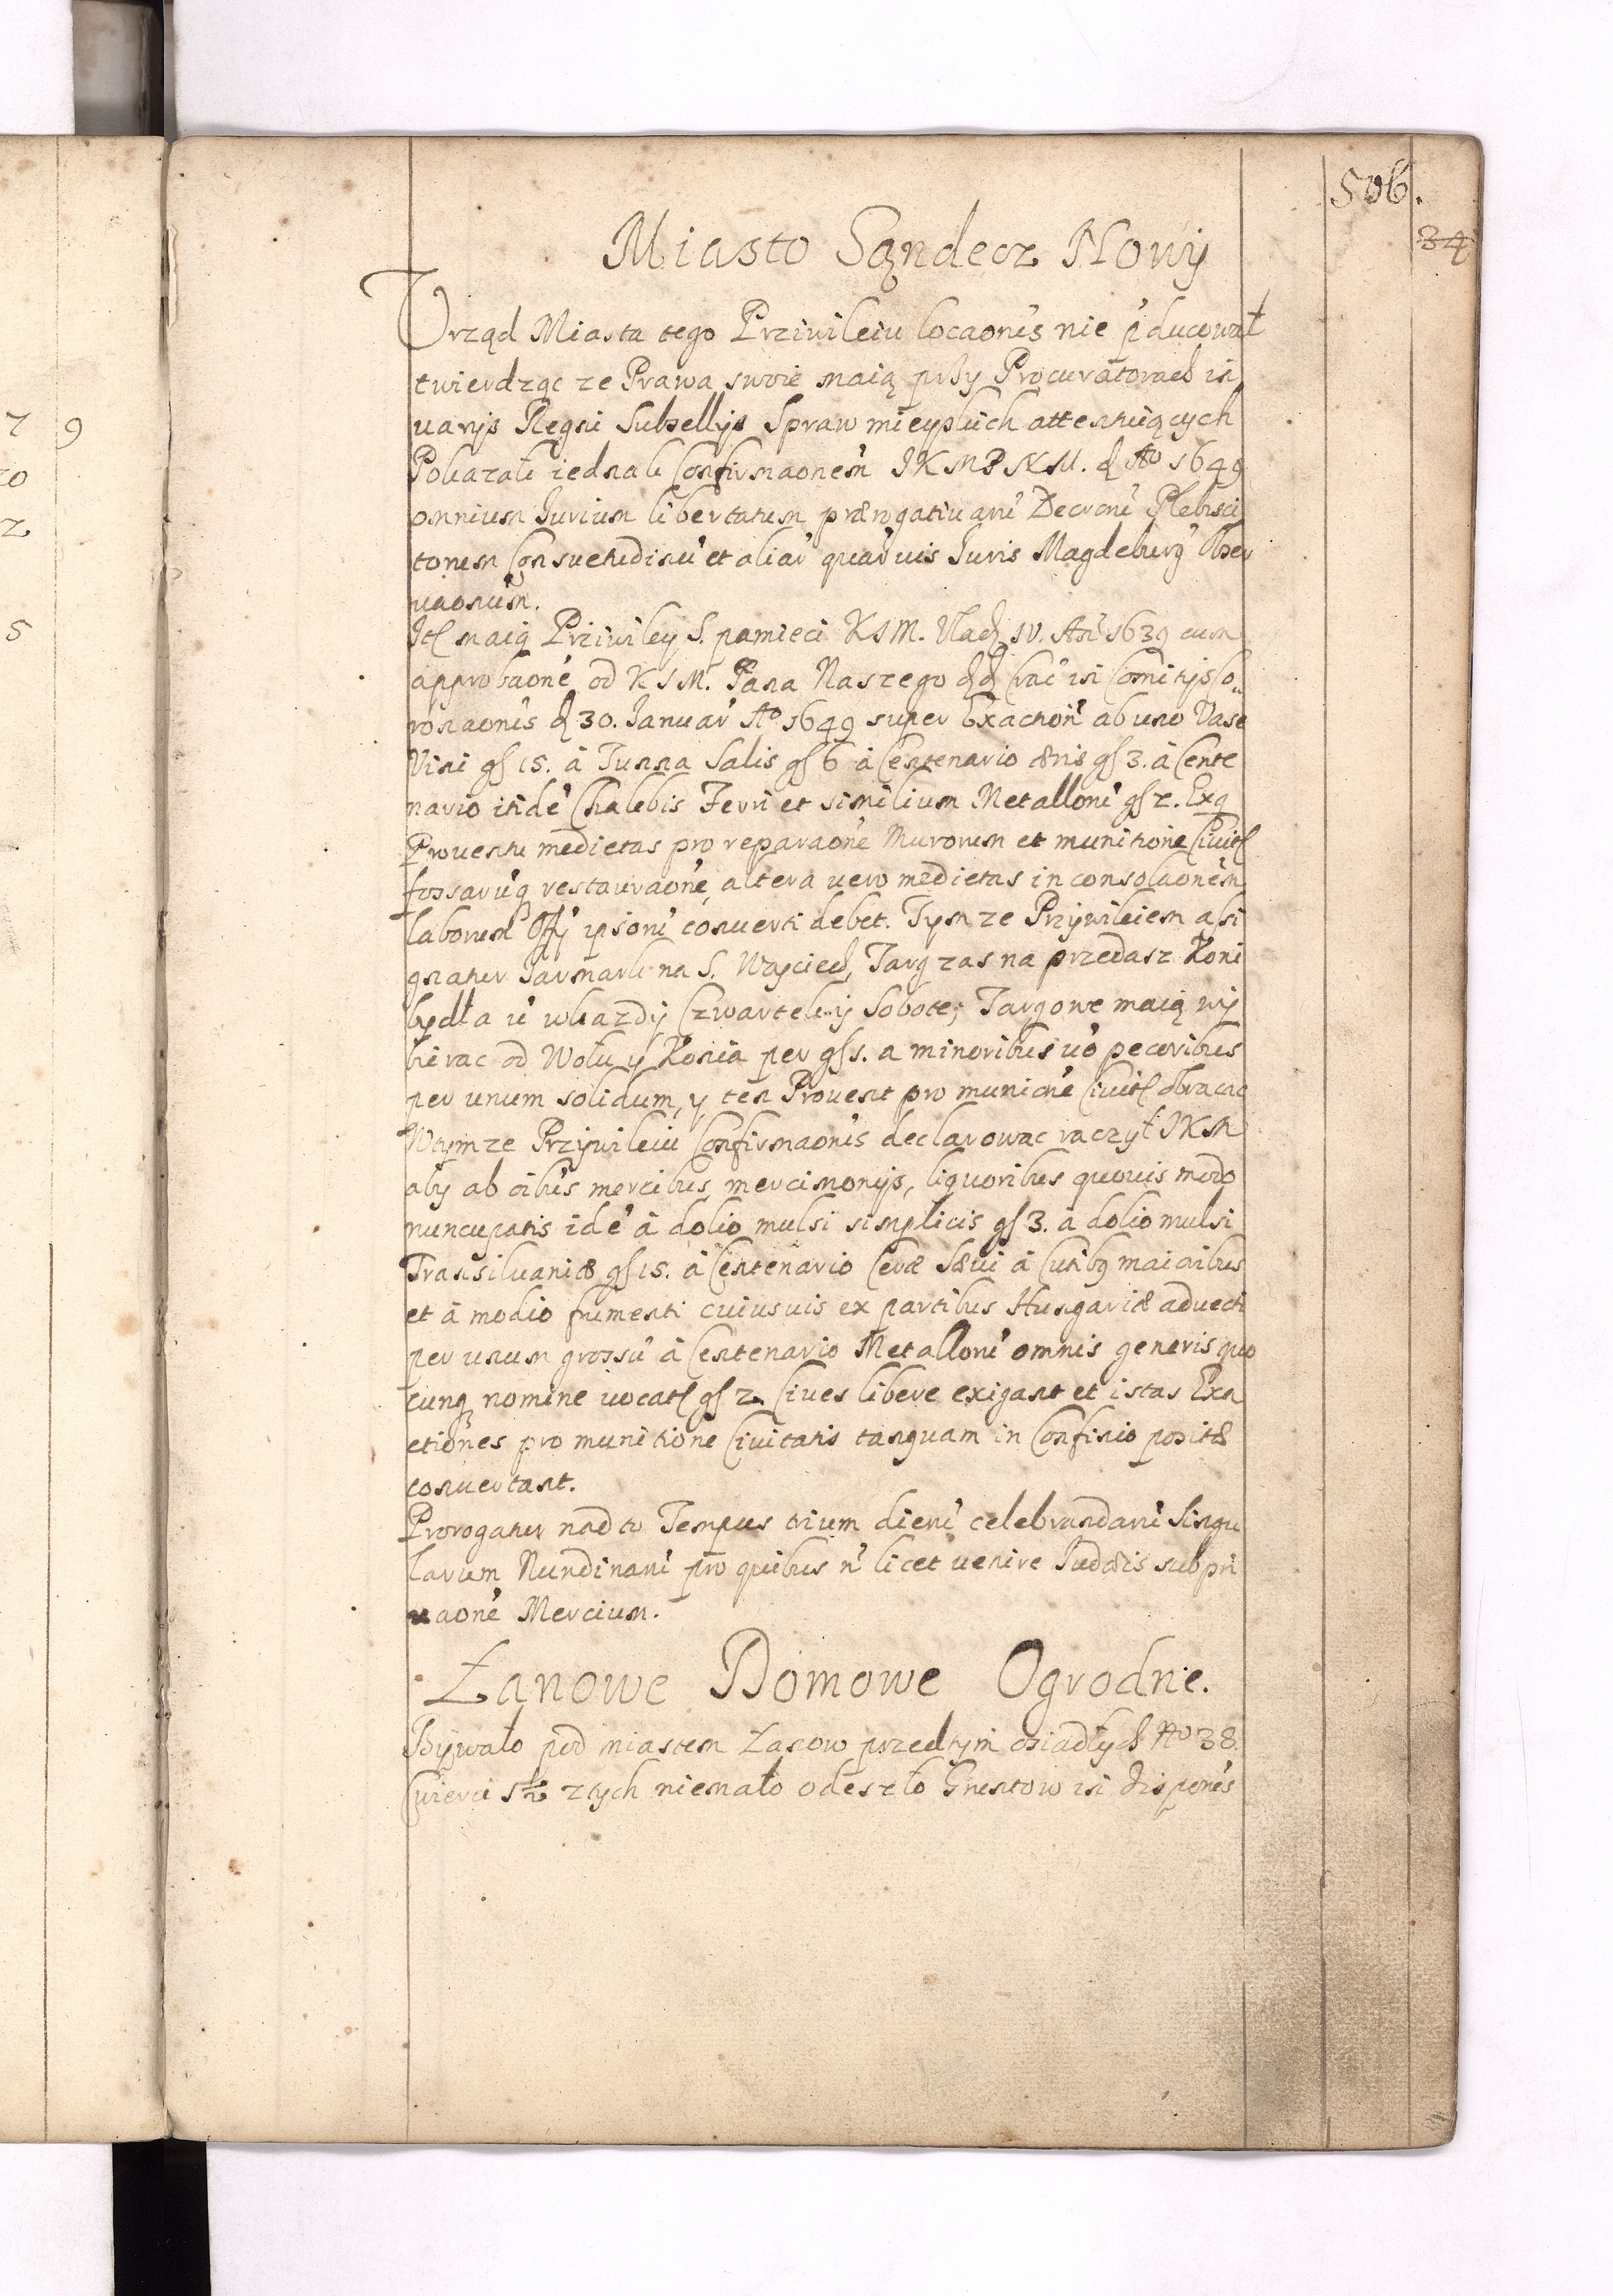 506.
34
Miasto Sąndecz Nowy
Vrząd Miasta tego Prziwileiu locaonis nie p̄ducował
twierdząc ze Prawa swoie maią przy Procuratorach in
varijs Regni Subsellijs Spraw mieyskich attentuiących
Pokazali iednak Confirmaonem JKMPNM. d Aº 1649
omnium Jurium libertatum prærogativarū Decronū Plebisci
torum Consuetudinū et aliar̄ quarūvis Juris Magdeburḡ obser
vaonum.
Itē maią Priwiley S. pamieci KJM. Vlad IV. An 1639 cum
approbaone od KJM. Pana Naszego dd Crac in Comitijs Co„
ronaonis d 30. Januar̄ Aº 1649 super Exaction̄ ab uno Vase
Vini gſ 15. à Tunna Salis gſ 6 à Centenario æris gſ 3. à Cente
nario itidē Chalebis Ferri et similium Metallorū gſ 2. Exq
Proventu medietas pro reparaone Murorum et munitione Civitt
fossarūq restauraone, altera vero medietas in consolaonem
laborum Offy ipsorū converti debet. Tymze Przywileiem assi
gnatur Jarmark na S. Woyciech, Targ zas na przedasz Koni
bydła ū wkazdy Czwartek y Sobote; Targowe maią wy
bierac od Wołu y Konia per gſ 1. a minoribus vo pecoribus
per unum solidum, y ten Provent pro municne Civitt obracac
Wtymze Przywileiu Confirmaonis declarowac raczył JKM
aby ab oibus mercibus, mercimonijs, liquoribus quovis modo
nuncupatis idē à dolio mulsi simplicis gſ 3. a dolio mulsi
Transilvaniæ gſ 15. à Centenario Ceræ Sævi à Cutibq maioribus
et à modio frumenti cuiusvis ex partibus Hungariæ advecti
per unum grossū à Centenario Metallorū omnis generis quo
cunq nomine vocatt gſ 2. Cives libere exigant et istas Exa
ctiones pro munitione Civitatis tanquam in Confinio positæ
convertant.
Prorogatur nadto Tempus trium dierū celebrandarū Singu
larum Nundinarū pro quibus n̄ licet venire Judæis sub pri
vaone Mercium.
Łanowe Domowe Ogrodne.
Bywało pod miastem Łanow przedtym osiadłych Nº 38.
Cwierci s½ ztych niemało odeszło Gruntow in dispones
7 9
20
2
5